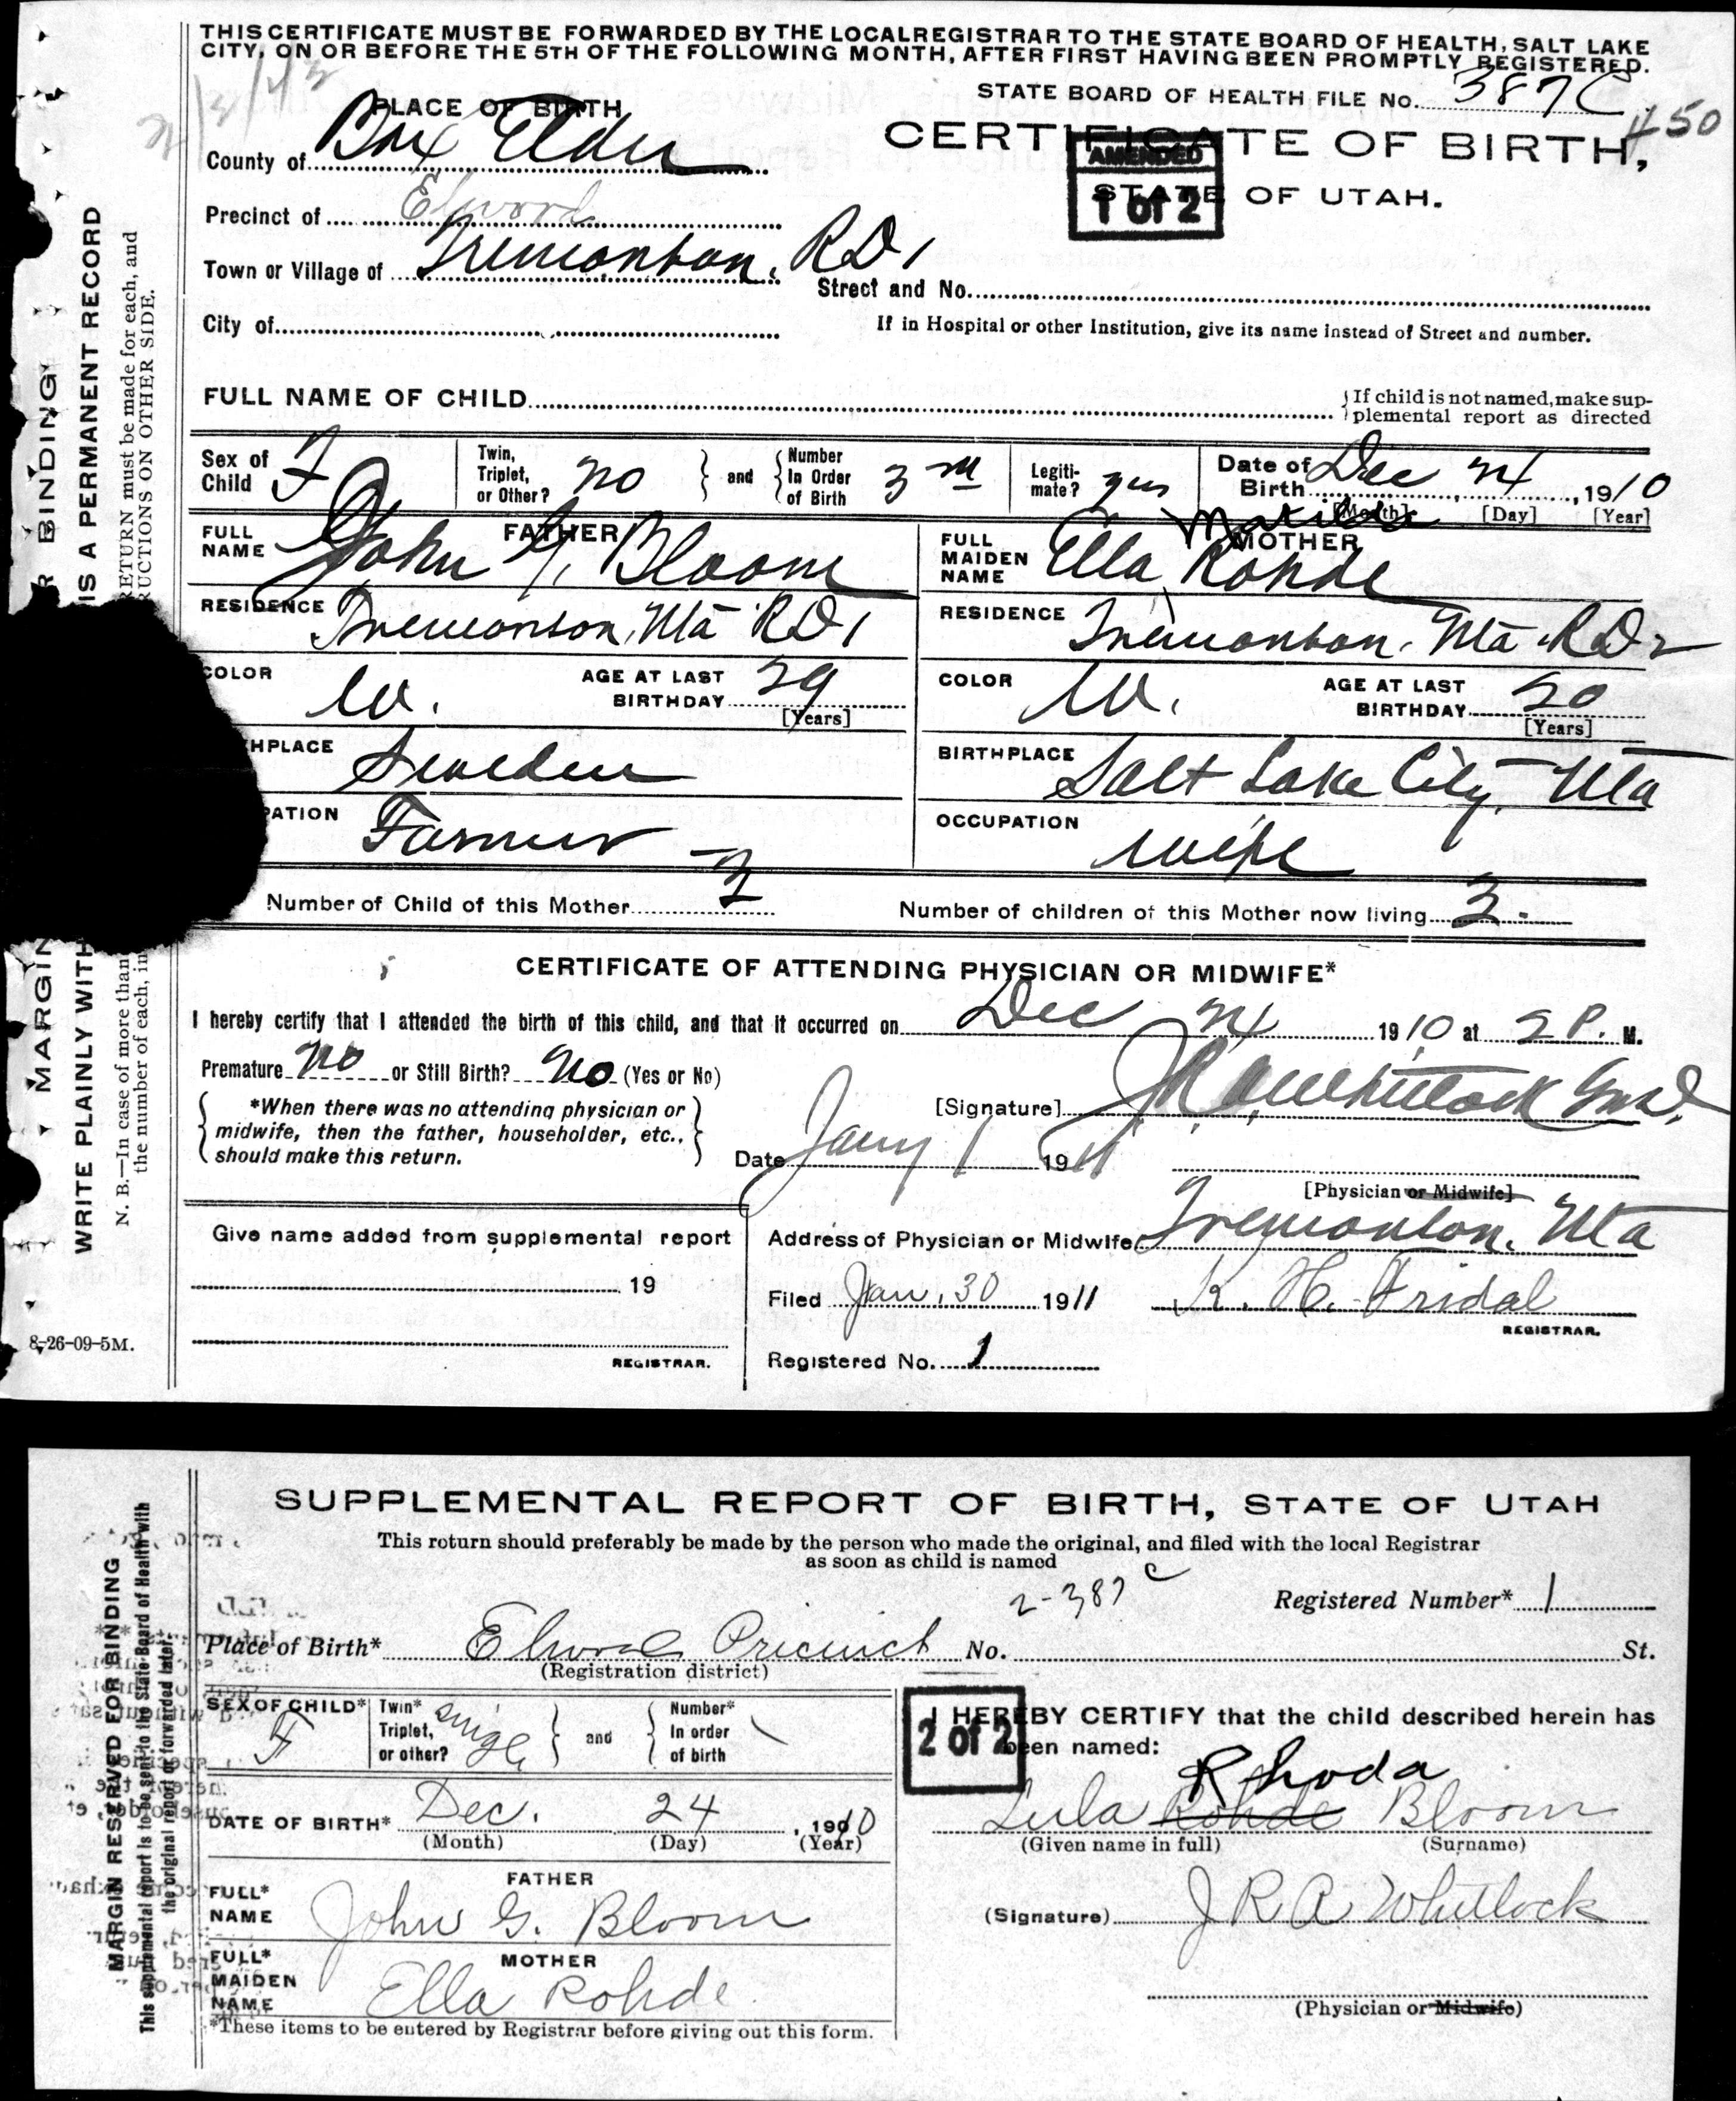 THIS CERTIFICATE MUST BE FORWARDED BY THE LOCAL REGISTRAR TO THE STATE BOARD OF HEALTH, SALT LAKE
CITY, ON OR BEFORE THE 5TH OF THE FOLLOWING MONTH, AFTER FIRST HAVING BEEN PROMPTLY REGISTERED.
STATE BOARD OF HEALTH FILE No. 387C
450
PLACE OF BIRTH
CERTIFICATE OF BIRTH,
STATE OF UTAH.
AMENDED
1 of 2
County of Box Elder
Precinct of Elwood
Town or Village of Tremonton. RD1
Street and No.
City of
If in Hospital or other Institution, give its name instead of Street and number.
FULL NAME OF CHILD
If child is not named, make sup-
plemental report as directed
Sex of Child F
Twin, Triplet, or Other? no and Number In Order of Birth 3
Legiti-mate? yes
Date of Birth Dec 24, 1910
[Month] [Day] [Year]
FATHER
FULL NAME John G. Bloom
MOTHER
FULL MAIDEN NAME Ella Matilda Rohde
RESIDENCE Tremonton, Uta RD1
RESIDENCE Tremonton. Uta RD2
COLOR W.
AGE AT LAST BIRTHDAY 29
[Years]
COLOR W.
AGE AT LAST BIRTHDAY 20
[Years]
HPLACE Sweden
BIRTHPLACE Salt Lake City, Uta
PATION Farmer
OCCUPATION wife
Number of Child of this Mother 3
Number of children of this Mother now living 3.
CERTIFICATE OF ATTENDING PHYSICIAN OR MIDWIFE*
I hereby certify that I attended the birth of this child, and that it occurred on Dec 24 1910 at 2 P. M.
Premature No or Still Birth? No (Yes or No)
*When there was no attending physician or
midwife, then the father, householder, etc.,
should make this return.
[Signature] JRA Whitlock
Date Jany 1 1911
[Physician or Midwife]
Give name added from supplemental report
19
REGISTRAR.
Address of Physician or Midwife Tremonton. Uta
Filed Jan. 30 1911 K. H. Fridal
REGISTRAR.
Registered No. 1
8-26-09-5M.
R BINDING
IS A PERMANENT RECORD
RETURN must be made for each, and
RUCTIONS ON OTHER SIDE.
MARGIN
WRITE PLAINLY WITH
N. B.—In case of more than
the number of each, in
SUPPLEMENTAL REPORT OF BIRTH, STATE OF UTAH
This return should preferably be made by the person who made the original, and filed with the local Registrar
as soon as child is named
2-387 c
Registered Number* 1
Place of Birth* Elwood Pricinct No. St.
(Registration district)
SEX OF CHILD* F
Twin* Triplet, or other? single and Number* In order of birth
2 of 2
I HEREBY CERTIFY that the child described herein has
been named:
Rhoda
Lula Rohde Bloom
(Given name in full) (Surname)
DATE OF BIRTH* Dec. 24, 1910
(Month) (Day) (Year)
FATHER
FULL* NAME John G. Bloom
(Signature) J R A Whitlock
MOTHER
FULL* MAIDEN NAME Ella Rohde
(Physician or Midwife)
*These items to be entered by Registrar before giving out this form.
MARGIN RESERVED FOR BINDING
This supplemental report is to be sent to the State Board of Health with
the original report or forwarded later.